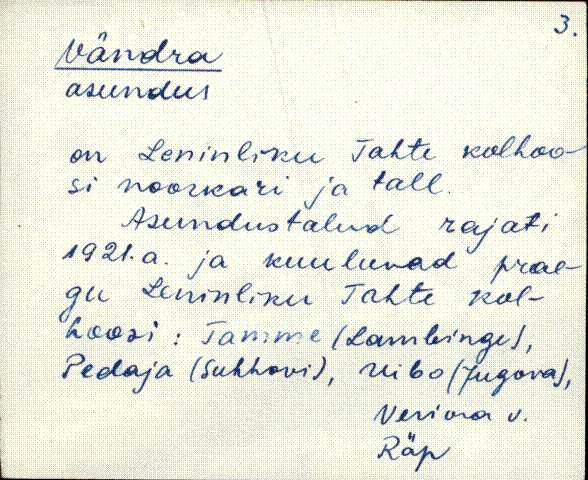 3.
Vändra
asundus
on Leninliku Tahte kolhoo-
si noorkari ja tall.
Asundustalud rajati
1921.a. ja kuuluvad prae-
gu Leninliku Tahte kol-
hoosi: Tamme (Lambingi),
Pedaja (Suhhovi), Uibo (Jugova),
v.
Räp